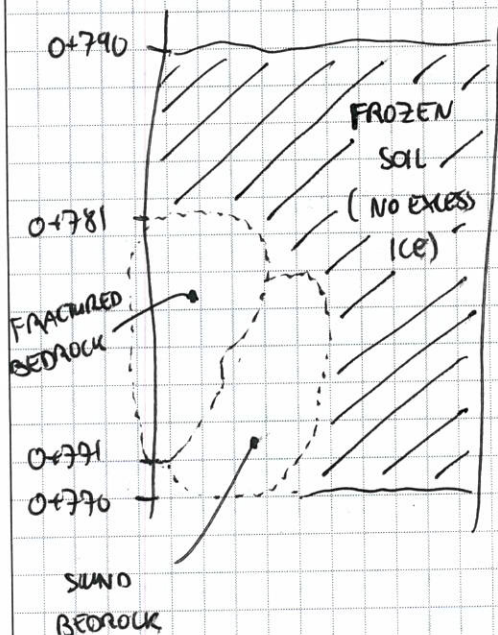 0+790
FROZEN
SOIL
( NO EXCESS
ICE)
0+781
FRACTURED
BEDROCK
0+771
0+770
SOUND
BEDROCK